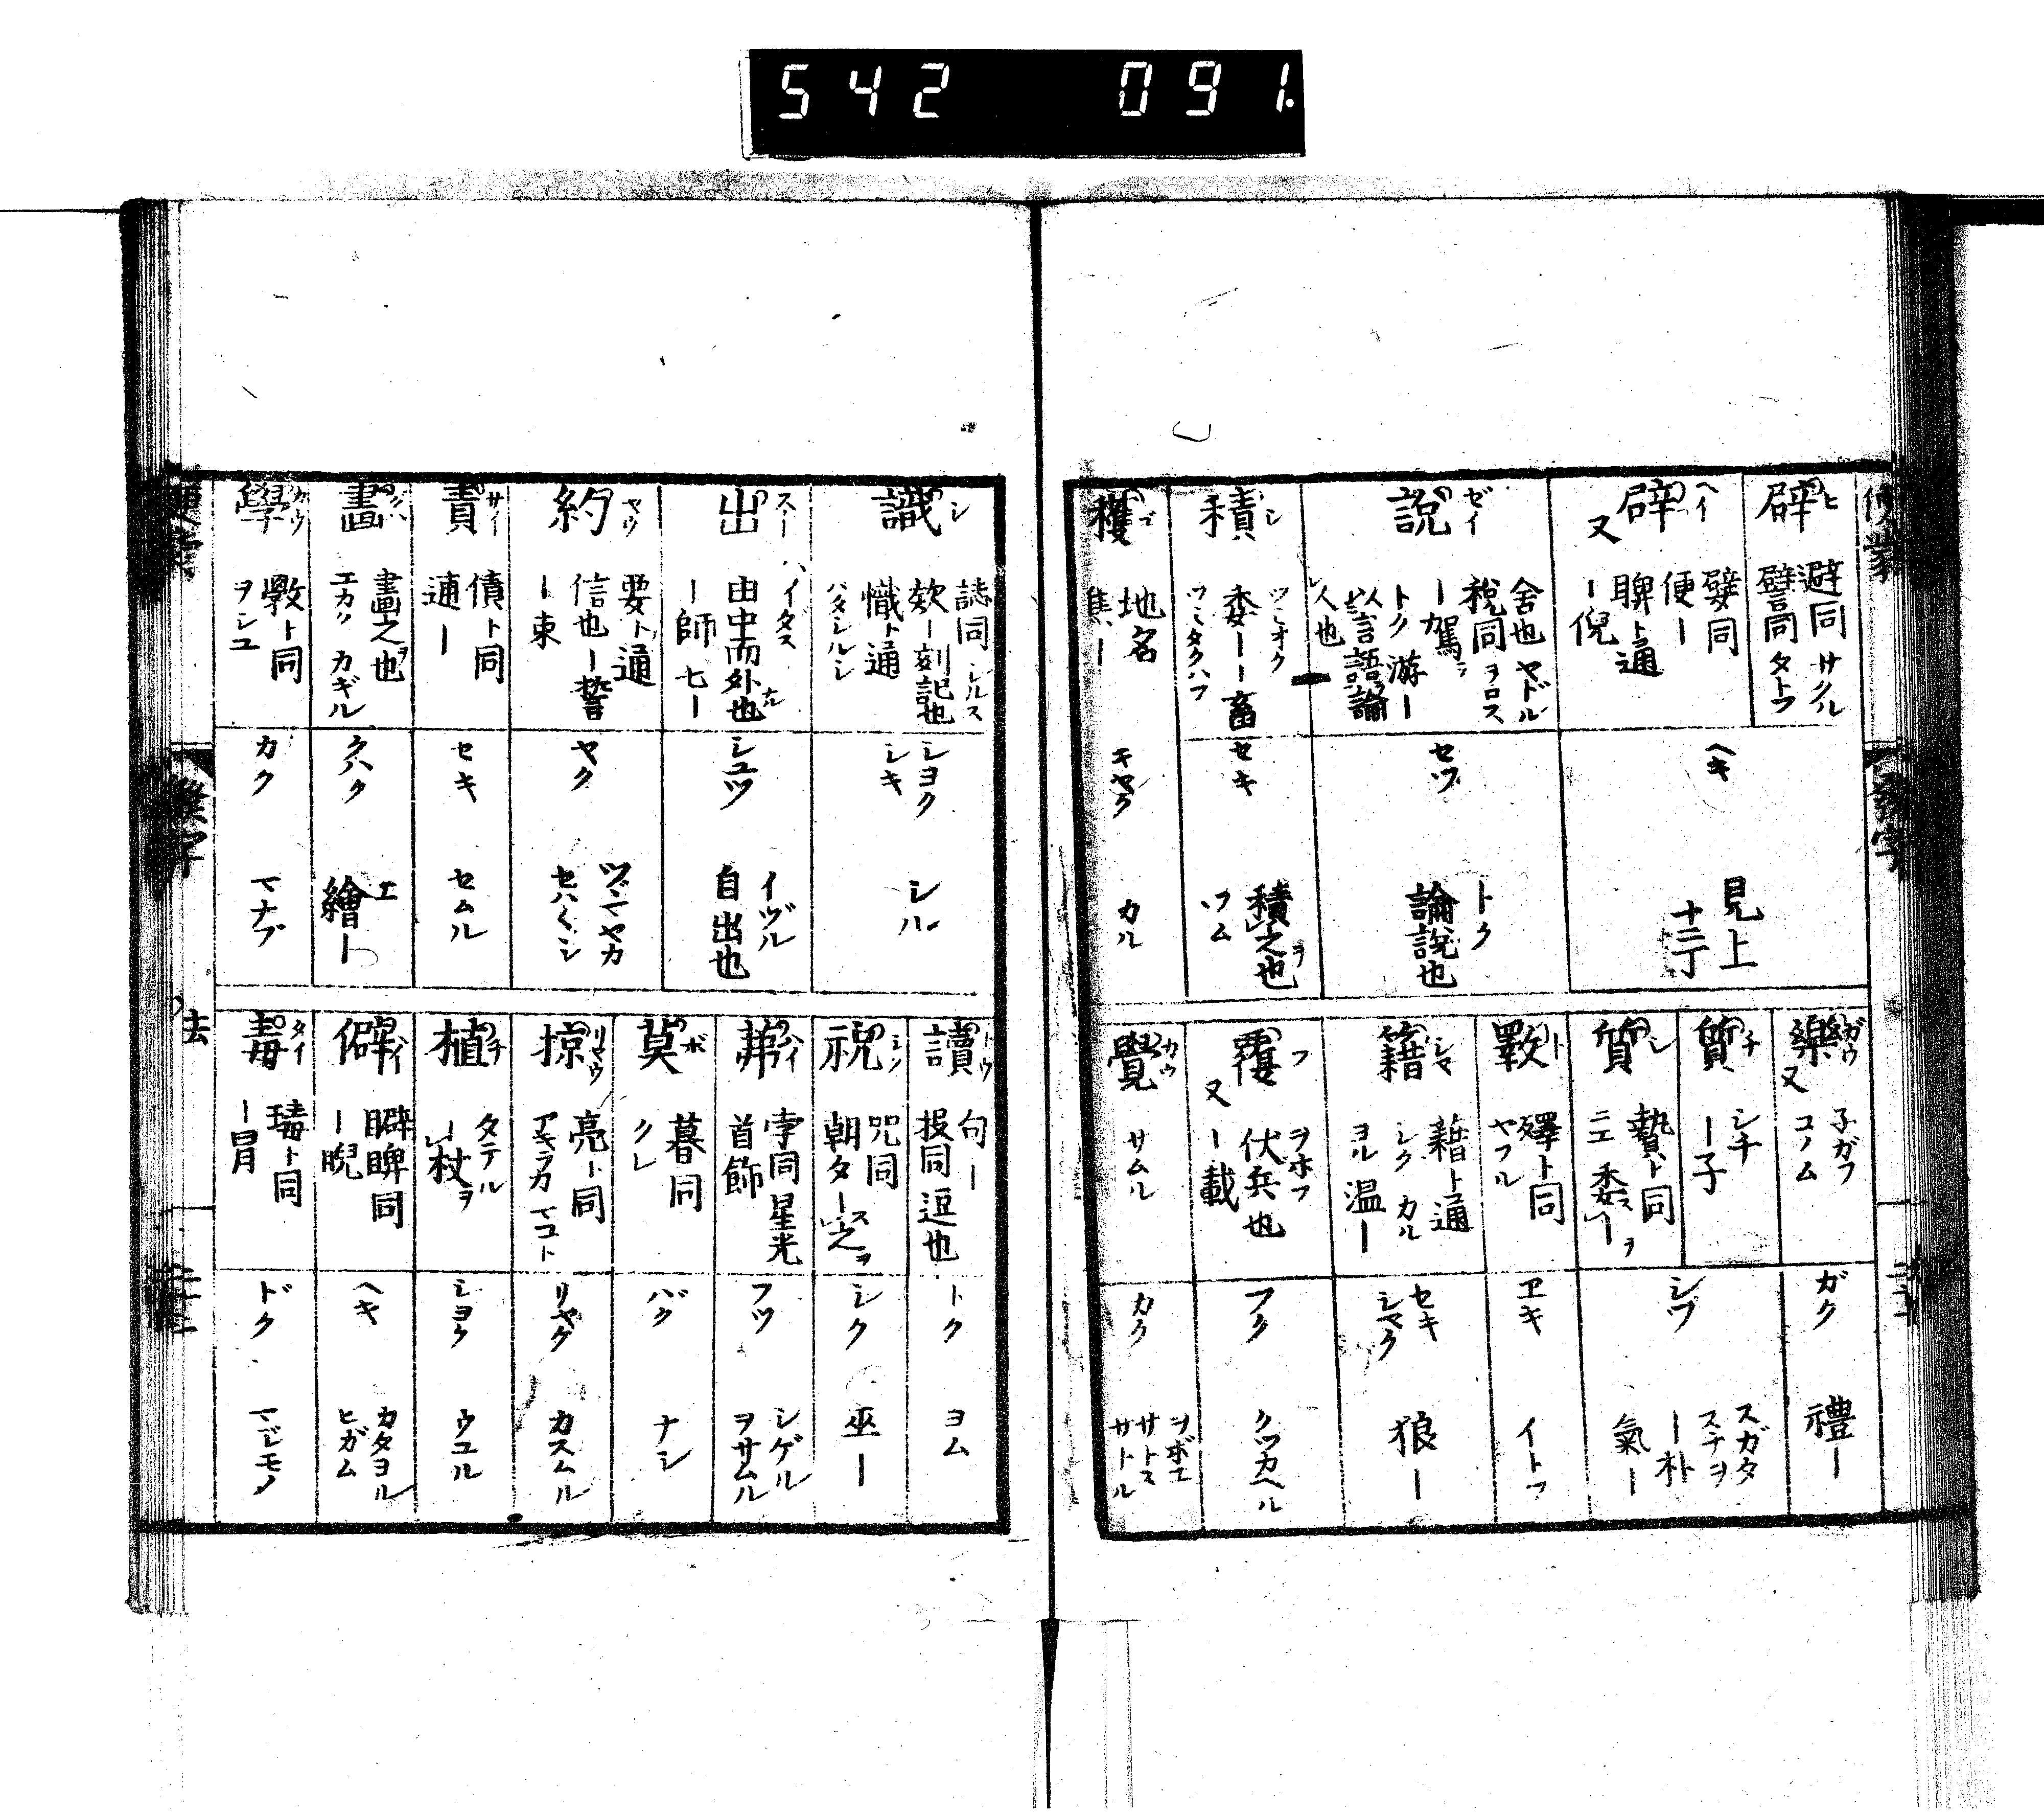 542 091.
辟 ヒ
避同 サクル
譬同 タトフ
辟 ヘイ
又
嬖同
便ー
睥ト通
ー倪
ヘキ
見上
十二丁
說 ゼイ
舍也 ヤドル
稅同 ヲロス
ー駕
トク 游ー
以言語諭
人也
セツ
トク
論說也
積 シ
ツミオク
委ーー畜
ツミタクハフ
セキ
積之也
ツム
穫 ゴ
地名
焦ー
キヤク
カル
樂 ガウ
又
子ガフ
コノム
ガク
禮ー
質 チ
シチ
ー子
質 シ
贄ト同
ニエ 委ー
シツ
スガタ
スナヲ
ー朴
氣ー
斁 ト
殬ト同
ヤフル
ヱキ
イトフ
籍 シヤ
藉ト通
シク カル
ヨル 温ー
セキ
シヤク
狼ー
覆 フ
又
ヲホフ
伏兵也
ー載
フク
クツカヘル
覺 カウ
サムル
カク
ヲボエ
サトス
サトル
識 シ
誌同 シルス
欵ー刻記也
幟ト通
ハタシルシ
シヨク
シキ
シル
出 スー
ハイタス
由中而外也
ー師 七ー
シユツ
イヅル
自出也
約 ヤウ
要ト通
信也ー誓
ー束
ヤク
ツヾマヤカ
セハ〱シ
責 サイ
債ト同
逋ー
セキ
セムル
畫
畫之也
エカク カギル
クハク
エ
繪ー
學 カウ
斆ト同
ヲシユ
カク
マナブ
讀 トウ
句ー
投同逗也
トク
ヨム
祝
咒同
朝タース之ヲ
シク
巫ー
茀 ハイ
孛同星光
首飾
フツ
シゲル
ヲサムル
莫 ボ
暮同
クレ
バク
ナシ
掠 リヤウ
亮ト同
アキラカ マコト
リヤク
カスムル
植 チ
タテル
ー杖ヲ
シヨク
ウユル
僻 ヘイ
睥同
ー睨
ヘキ
カタヨル
ヒガム
毒 タイ
瑇ト同
ー冒
ドク
マジモノ
法